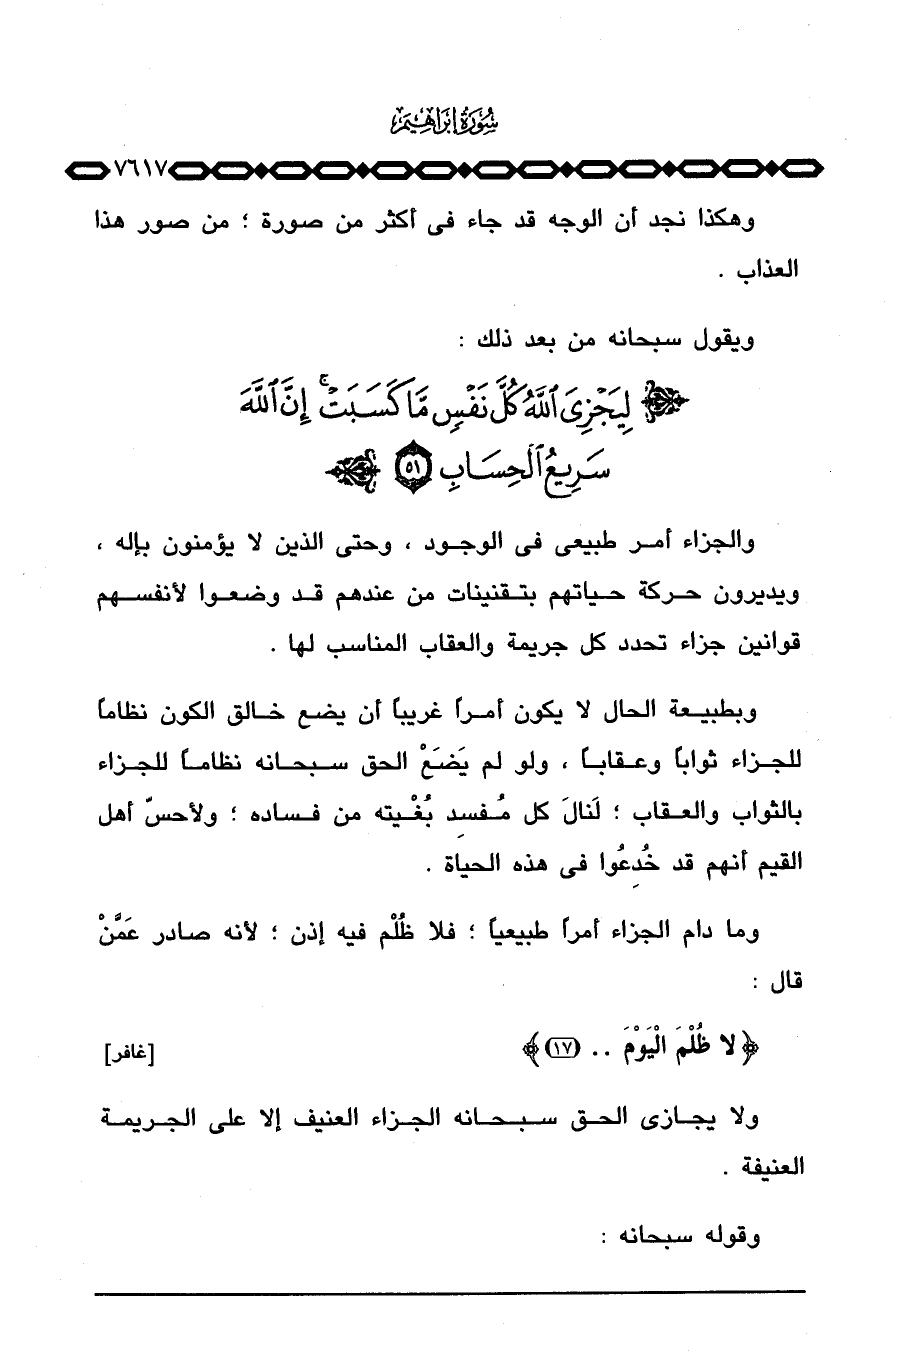 سُورَةُ إِبْرَاهِيمَ
٧٦١٧
وهكذا نجد أن الوجه قد جاء فى أكثر من صورة ؛ من صور هذا
العذاب .
ويقول سبحانه من بعد ذلك :
﴿ لِيَجْزِىَ ٱللَّهُ كُلَّ نَفْسٍ مَّا كَسَبَتْ ۚ إِنَّ ٱللَّهَ
سَرِيعُ ٱلْحِسَابِ ٥١ ﴾
والجزاء أمر طبيعى فى الوجود ، وحتى الذين لا يؤمنون بإله ،
ويديرون حركة حياتهم بتقنينات من عندهم قد وضعوا لأنفسهم
قوانين جزاء تحدد كل جريمة والعقاب المناسب لها .
وبطبيعة الحال لا يكون أمراً غريباً أن يضع خالق الكون نظاماً
للجزاء ثواباً وعقاباً ، ولو لم يَضَعْ الحق سبحانه نظاماً للجزاء
بالثواب والعقاب ؛ لَنالَ كل مُفسِد بُغْيته من فساده ؛ ولأحسّ أهل
القيم أنهم قد خُدِعُوا فى هذه الحياة .
وما دام الجزاء أمراً طبيعياً ؛ فلا ظُلْم فيه إذن ؛ لأنه صادر عَمَّنْ
قال :
﴿ لا ظُلْمَ الْيَوْمَ .. (١٧) ﴾ [غافر]
ولا يجازى الحق سبحانه الجزاء العنيف إلا على الجريمة
العنيفة .
وقوله سبحانه :